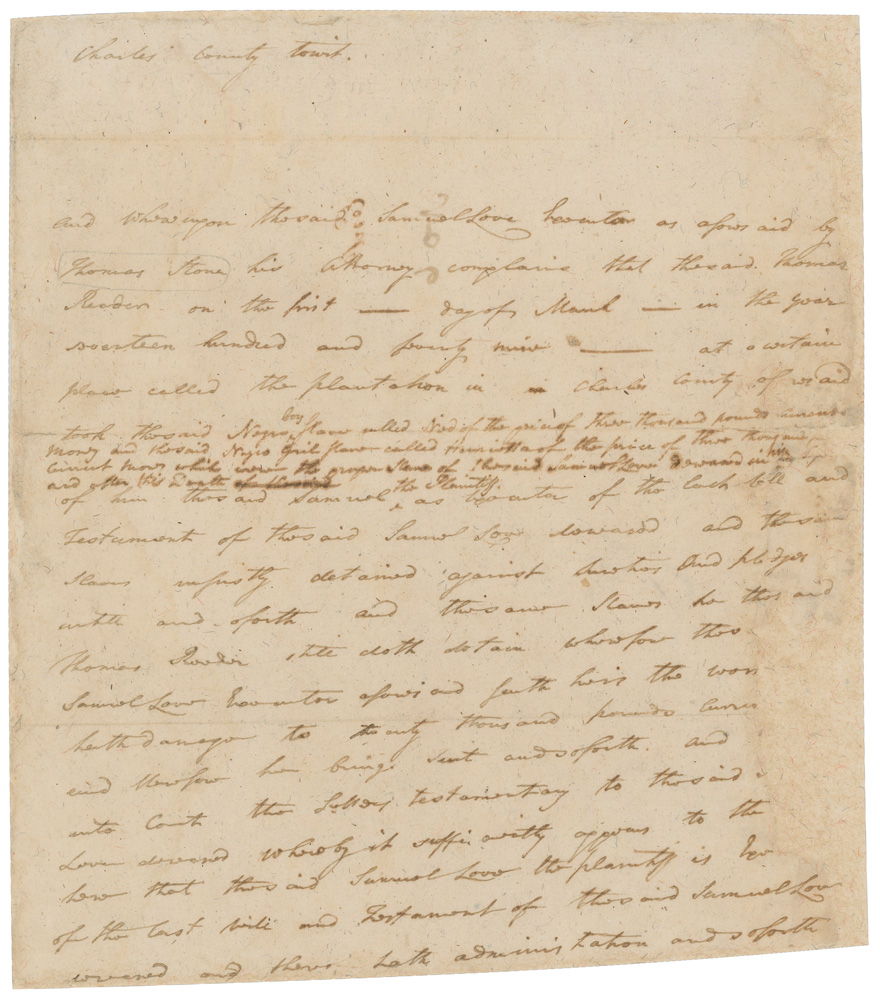 Charles County towit.
and whereupon the said Samuel Love Executor as afores aid by
Thomas Stone his Attorney complains that the said Thomas
Reeder on the first — day of March — in the year
seventeen hundred and seventy nine — at a certain
place called the plantation in Charles County afores aid
boy
took the said Negro Slave called Ned of the price of three thousand pounds current
money and the said Negro Girl slave called Henrietta of the price of three thousand
Current money which were the proper slaves of the said Samuel Love deceased in his
and after his Death the Plaintiff
of him the said Samuel as Executor of the last will and
Testament of the said Samuel Love deceased and the same
slaves unjustly detained against sureties and pledges
untill and soforth and the same slaves he the said
Thomas Reeder still doth detain wherefore the
Samuel Love Executor afores aid saith he is the wors
hath damage to twenty thousand pounds curren
and therefore he brings suit and soforth. and
into Court the Letters testamentary to the said
Love deceased whereby it sufficiently appears to the
here that the said Samuel Love the plaintiff is Exe
of the last will and Testament of the said Samuel Love
deceased and there hath administration and soforth